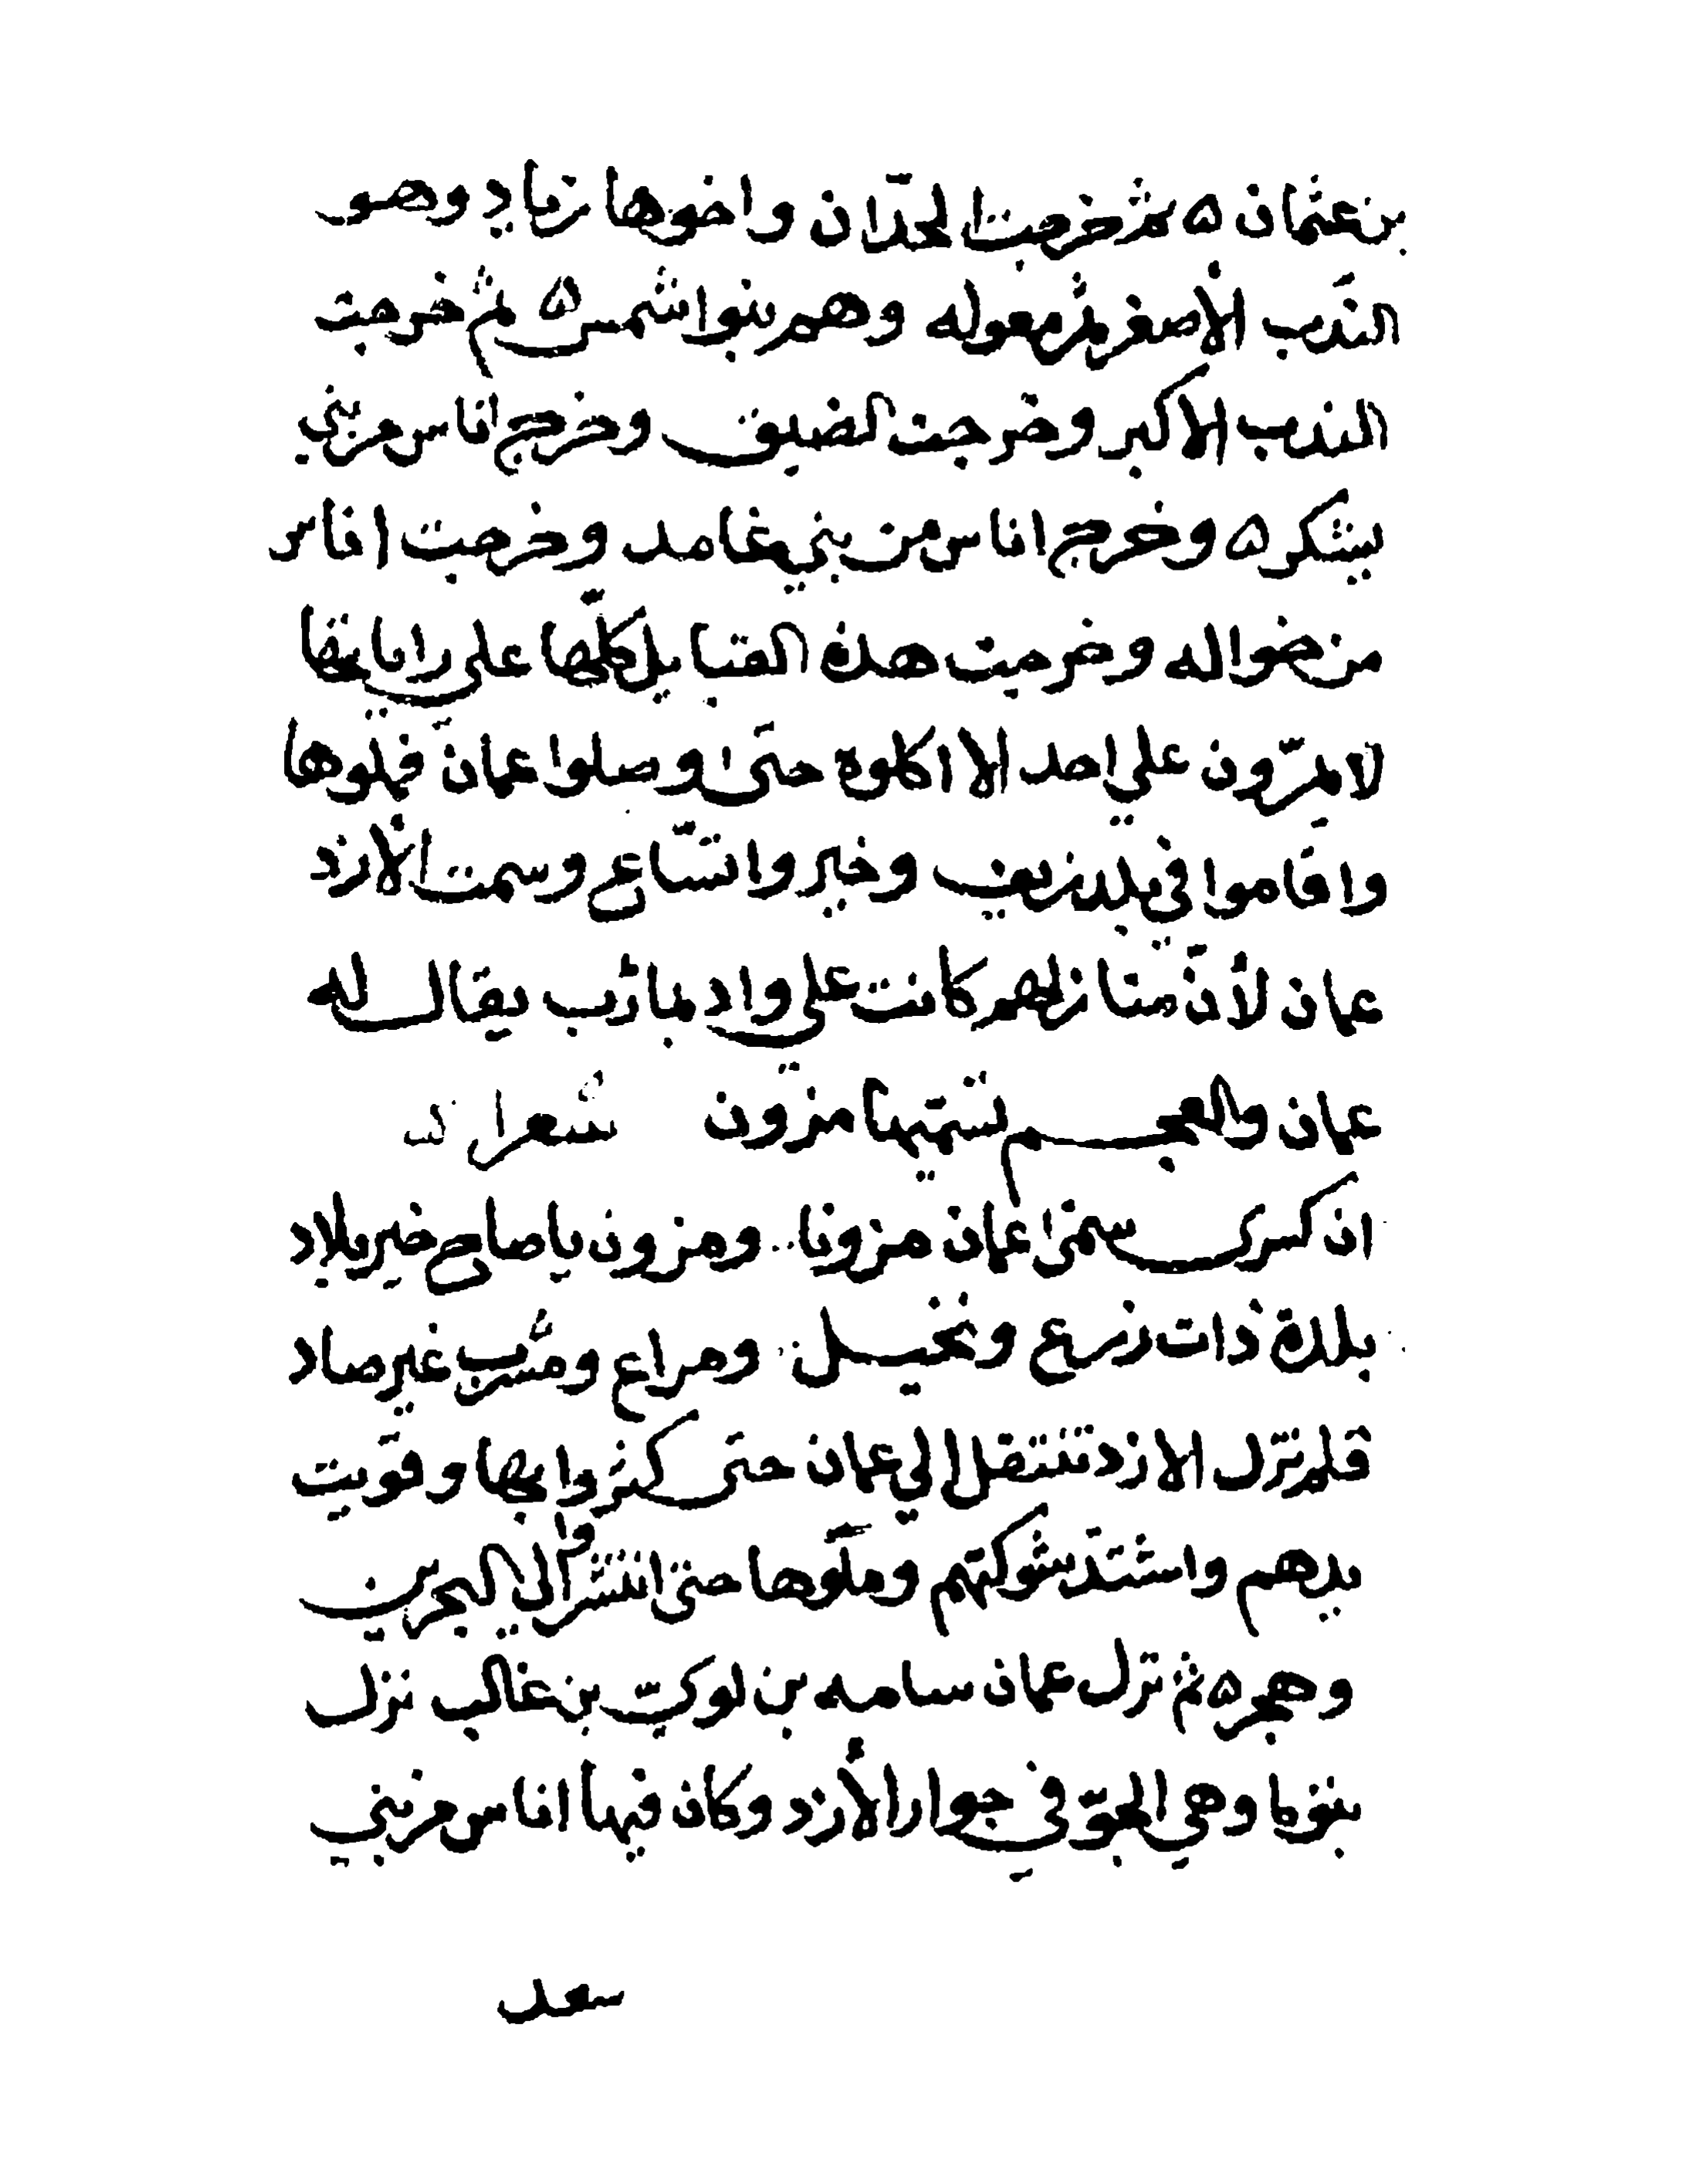 بن عثمان ۵ ثم خرجت الحدّان واخوها زياد وهو
الندب الأصغر ثم معوله وهم بنوا شمس ۵ ثم خرجت
الندب الاكبر وخرجت الضيق وخرج اناس من بني
يشكر ۵ وخرج اناس من بني غامد وخرجت اناس
من خواله وخرجت هذه القبايل كلّها على راياتها
لا يمرّون علي احد الا اكلوه حتى وصلوا عمان فملوها
واقاموا في بلد ريف وخير واتّساع وسمت الأزد
عمان لأنّ منازلهم كانت علي واد بمأرب يقال له
عمان والعجم تسمّيها مزون شعرا
ان كسرى سمّى عمان مزونا ومزون يا صاح خير بلاد
بلدة ذات زرع ونخيل ومراع ومشرب غير صاد
فلم تزل الازد تنتقل الي عمان حتى كثروا بها وقويت
يدهم واشتدّ شوكتهم وملّوها حتى انتشروا الي البحرين
وهجر ۵ ثم نزل عمان سامه بن لوي بن غالب نزل
بتوما وهي الجوّ في جوار الأزد وكان فيها اناس من بني
سعد